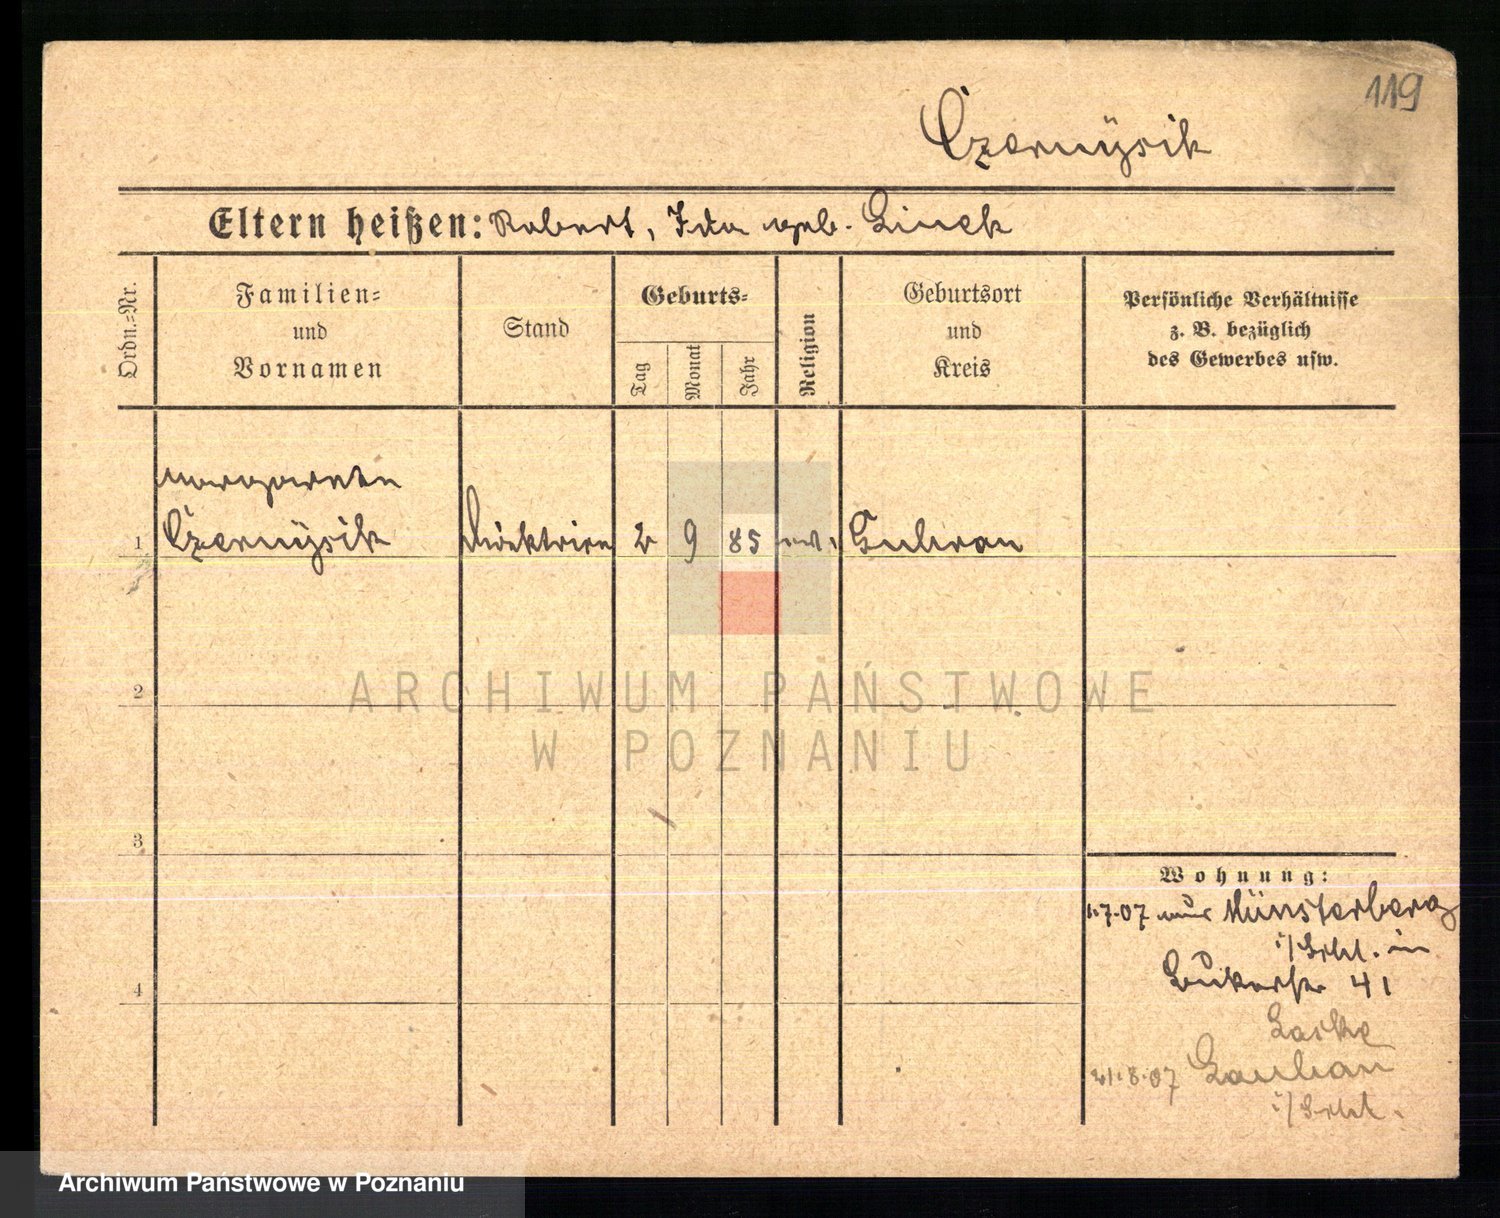 119
Czernÿsik
Eltern heißen: Robert, Ida geb. Linck
Ordn.-Nr.
Familien-
und
Vornamen
Stand
Geburts-
Tag
Monat
Jahr
Religion
Geburtsort
und
Kreis
Persönliche Verhältnisse
z. B. bezüglich
des Gewerbes usw.
Margarete
1 Czernÿsik Direktrice 2 9 85 ev. Guhrau
2
3
4
Wohnung:
1.7.07 aus Münsterberg
i/Schl. in
Bukerstr 41
21.8.07
i/Schl.
ARCHIWUM PAŃSTWOWE
W POZNANIU
Archiwum Państwowe w Poznaniu